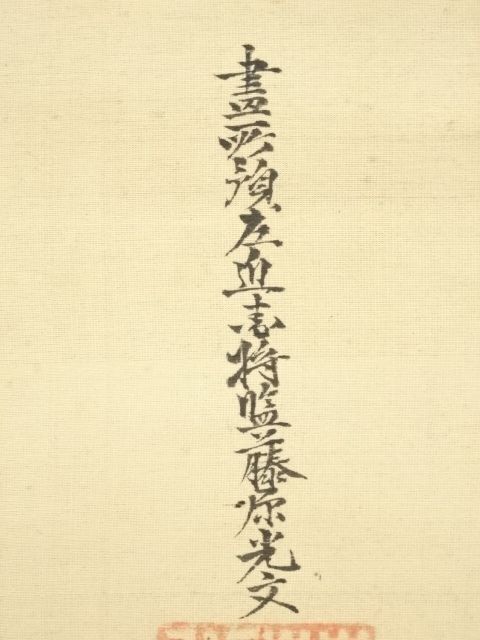 畫所預左近衛將監藤原光文